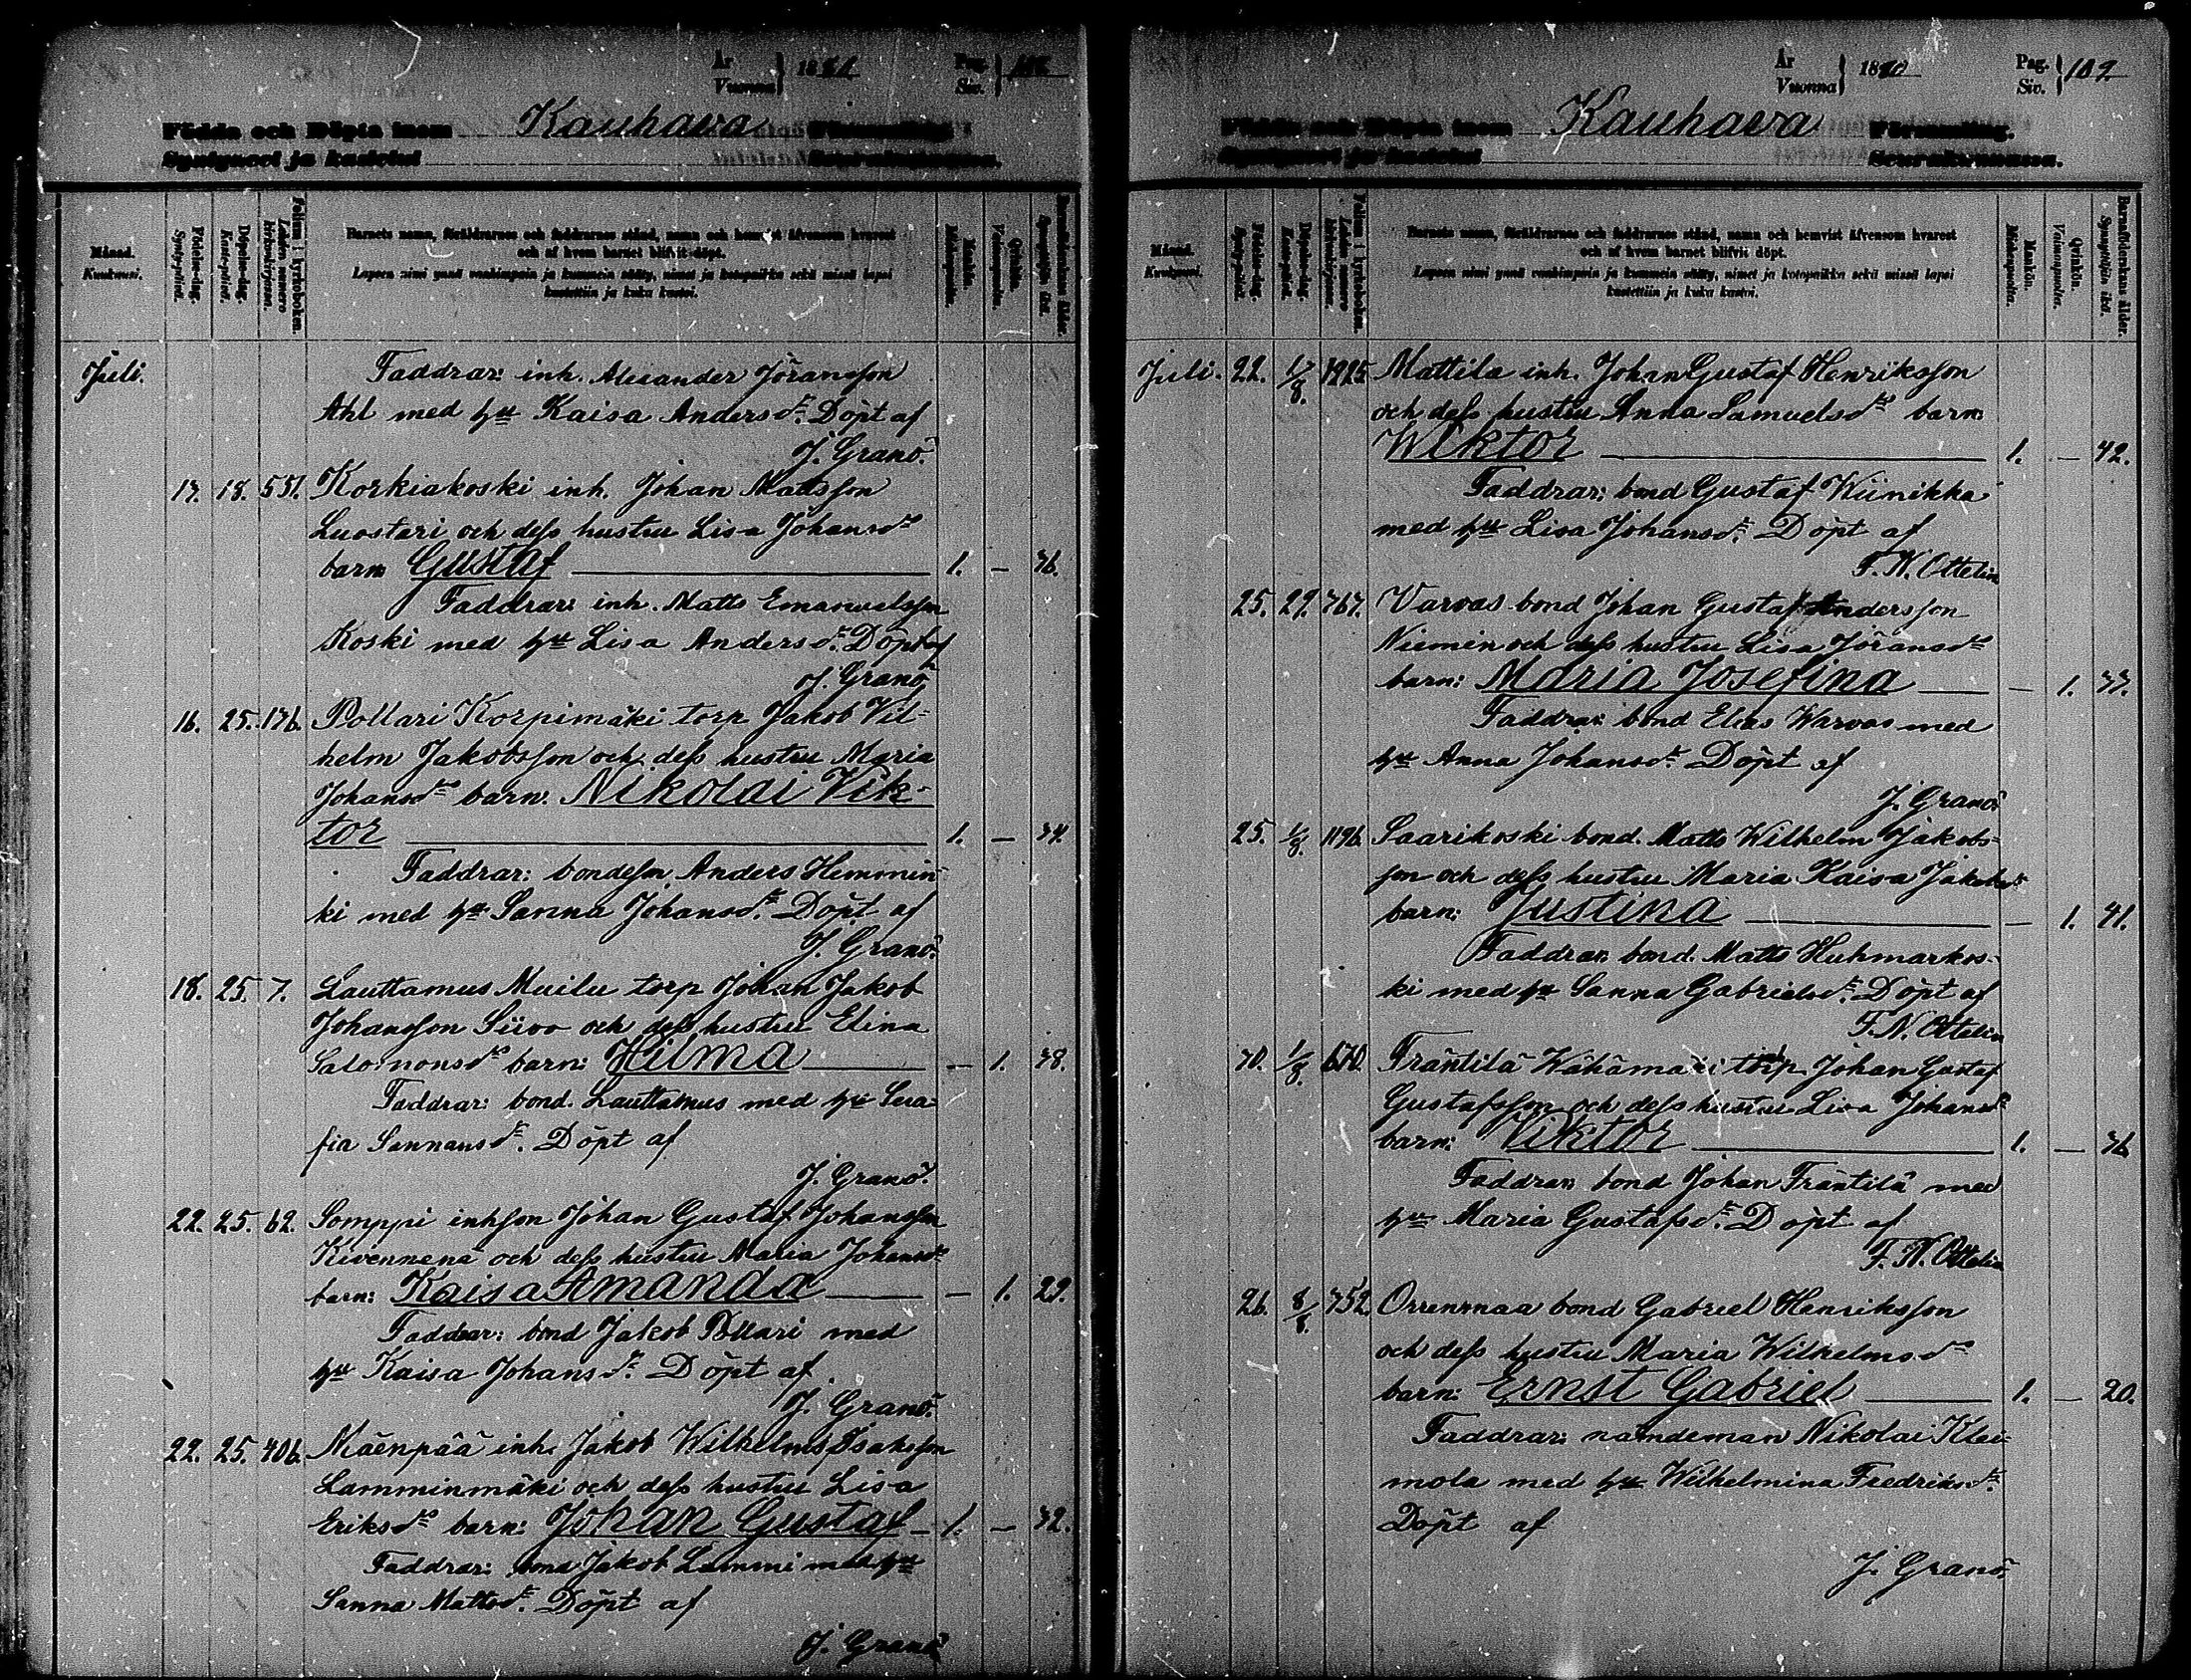 År
Vuonna
18
Pag.
Siv.
Födda och Döpta inom Kauhava Församling.
Syntyneet ja kastetut Seurakunnassa.
Månad.
Kuukausi.
Födelse-dag.
Synty-päivä.
Döpelse-dag.
Kaste-päivä.
Folium i kyrkoboken.
Lehden numero
kirkonkirjassa.
Barnets namn, föräldrarnes och faddrarnes stånd, namn och hemvist äfvensom hvarest
och af hvem barnet blifvit döpt.
Lapsen nimi ynnä vanhimpain ja kummein sääty, nimet ja kotopaikka sekä missä lapsi
kastettiin ja kuka kastoi.
Mankön.
Miehenpuolta.
Qvinkön.
Vaimonpuolta.
Barnaföderskans ålder.
Synnyttäjän ikä.
Juli.
Faddrar: inh. Alexander Jöransson
Ahl med hu Kaisa Andersdr. Döpt af
J. Granö.
17. 18. 551. Korkiakoski inh. Johan Mattsson
Luostari och dess hustru Lisa Johansdr
barn Gustaf 1. — 36.
Faddrar: inh. Matts Emanuelsson
Koski med hu Lisa Andersdr. Döpt af
J. Granö
16. 25. 176. Pollari Korpimäki torp Jakob Vil-
helm Jakobsson och dess hustru Maria
Johansdr barn: Nikolai Vik-
tor 1. — 34.
Faddrar: bondeson Anders Hemmin-
ki med hu Sanna Johansdr. Döpt af
J. Granö.
18. 25. 7. Lauttamus Muilu torp Johan Jakob
Johansson Siivo och dess hustru Elina
Salomonsdr barn: Hilma — 1. 38.
Faddrar: bond. Lauttamus med hu Sera-
fia Sannansdr. Döpt af
J. Granö.
22. 25. 62. Somppi inhson Johan Gustaf Johansson
Kivennenä och dess hustru Maria Johansdr
barn: Kaisa Amanda — 1. 29.
Faddrar: bond Jakob Pollari med
hu Kaisa Johansdr. Döpt af
J. Granö.
22. 25. 406. Mäenpää inh. Jakob Wilhelm Isaksson
Lamminmäki och dess hustru Lisa
Eriksdr barn: Johan Gustaf 1. — 32.
Faddrar: bond Jakob Lammi med hu
Sanna Mattsdr. Döpt af
J. Granö
År
Vuonna
1880
Pag.
Siv.
109
Födda och Döpta inom Kauhava Församling.
Syntyneet ja kastetut Seurakunnassa.
Månad.
Kuukausi.
Födelse-dag.
Synty-päivä.
Döpelse-dag.
Kaste-päivä.
Folium i kyrkoboken.
Lehden numero
kirkonkirjassa.
Barnets namn, föräldrarnes och faddrarnes stånd, namn och hemvist äfvensom hvarest
och af hvem barnet blifvit döpt.
Lapsen nimi ynnä vanhimpain ja kummein sääty, nimet ja kotopaikka sekä missä lapsi
kastettiin ja kuka kastoi.
Mankön.
Miehenpuolta.
Qvinkön.
Vaimonpuolta.
Barnaföderskans ålder.
Synnyttäjän ikä.
Juli. 22. 1/8. 1225 Mattila inh. Johan Gustaf Henriksson
och dess hustru Anna Samuelsdr barn
Wiktor 1. — 42.
Faddrar: bond Gustaf Wiinikka
med hu Lisa Johansdr. Döpt af
F. N. Ottelin
25. 29. 767. Varvas bond Johan Gustaf Andersson
Niemin och dess hustru Lisa Jöransdr
barn: Maria Josefina — 1. 37.
Faddrar: bond Elias Warvas med
hu Anna Johansdr. Döpt af
J. Granö.
25. 1/8. 1196. Saarikoski bond. Matts Wilhelm Jakobs-
son och dess hustru Maria Kaisa Jakobsdr
barn: Justina — 1. 41.
Faddrar: bond. Matts Huhmarkos-
ki med hu Sanna Gabrielsdr. Döpt af
F. N. Ottelin
30. 1/8. 670. Fräntilä Wähämäki torp. Johan Gustaf
Gustafsson och dess hustru Lisa Johansdr
barn: Viktor 1. — 36
Faddrar: bond Johan Fräntilä med
hu Maria Gustafsdr. Döpt af
F. N. Ottelin
26. 8/8. 752. Orrenmaa bond Gabriel Henriksson
och dess hustru Maria Wilhelmsdr
barn: Ernst Gabriel 1. — 20.
Faddrar: nämdeman Nikolai Klei-
mola med hu Wilhelmina Fredriksdr.
Döpt af
J. Granö.